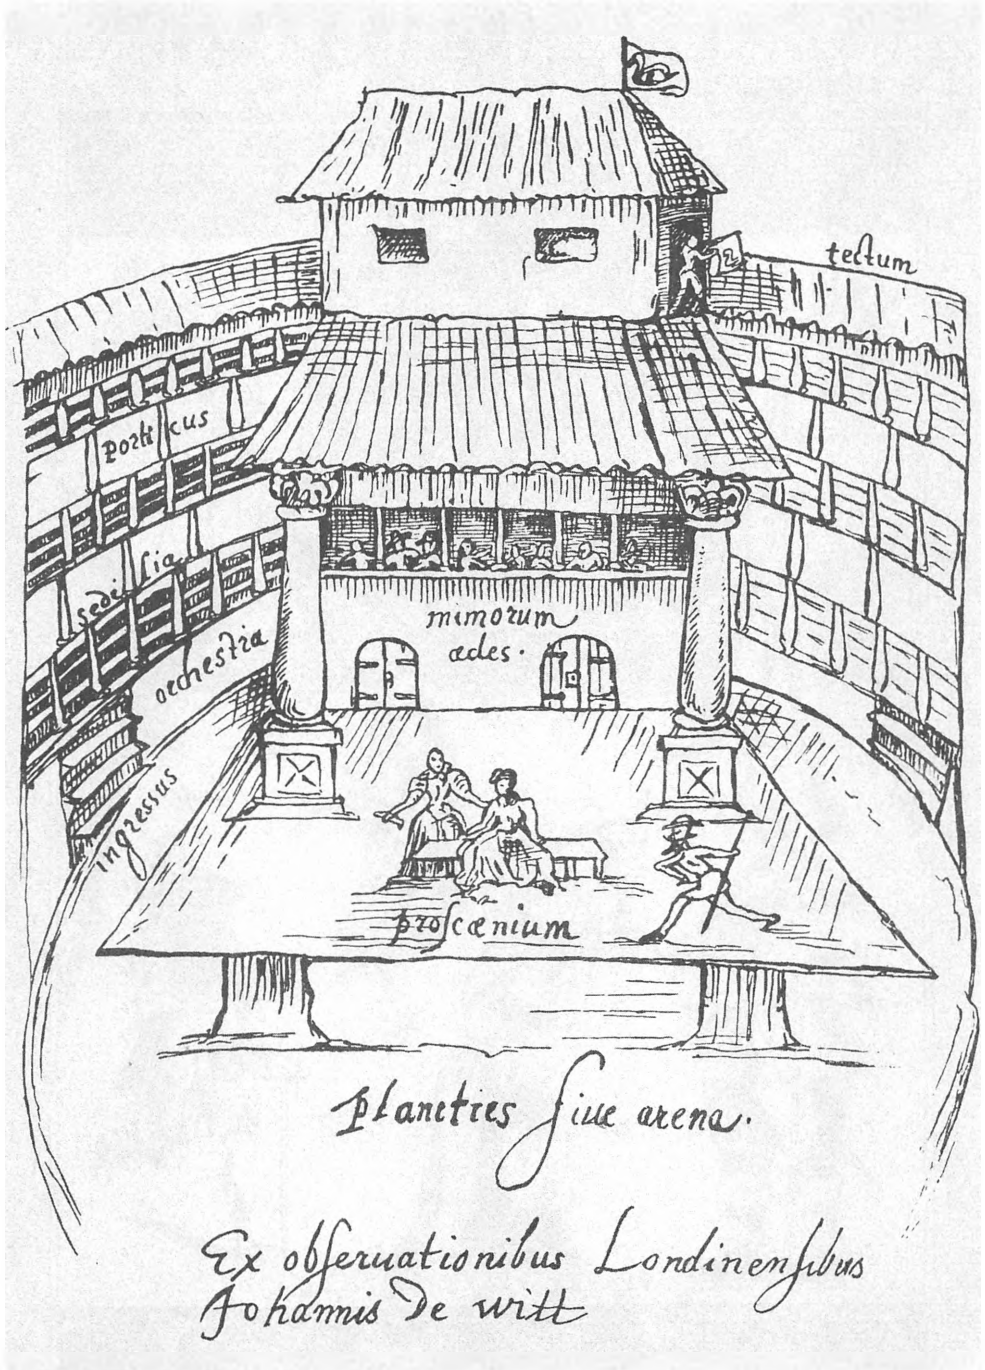 tectum
porticus
sedilia
orchestra
mimorum
ædes.
ingressus
proſcænium
planities ſiue arena.
Ex obſeruationibus Londinenſibus
Johannis De witt